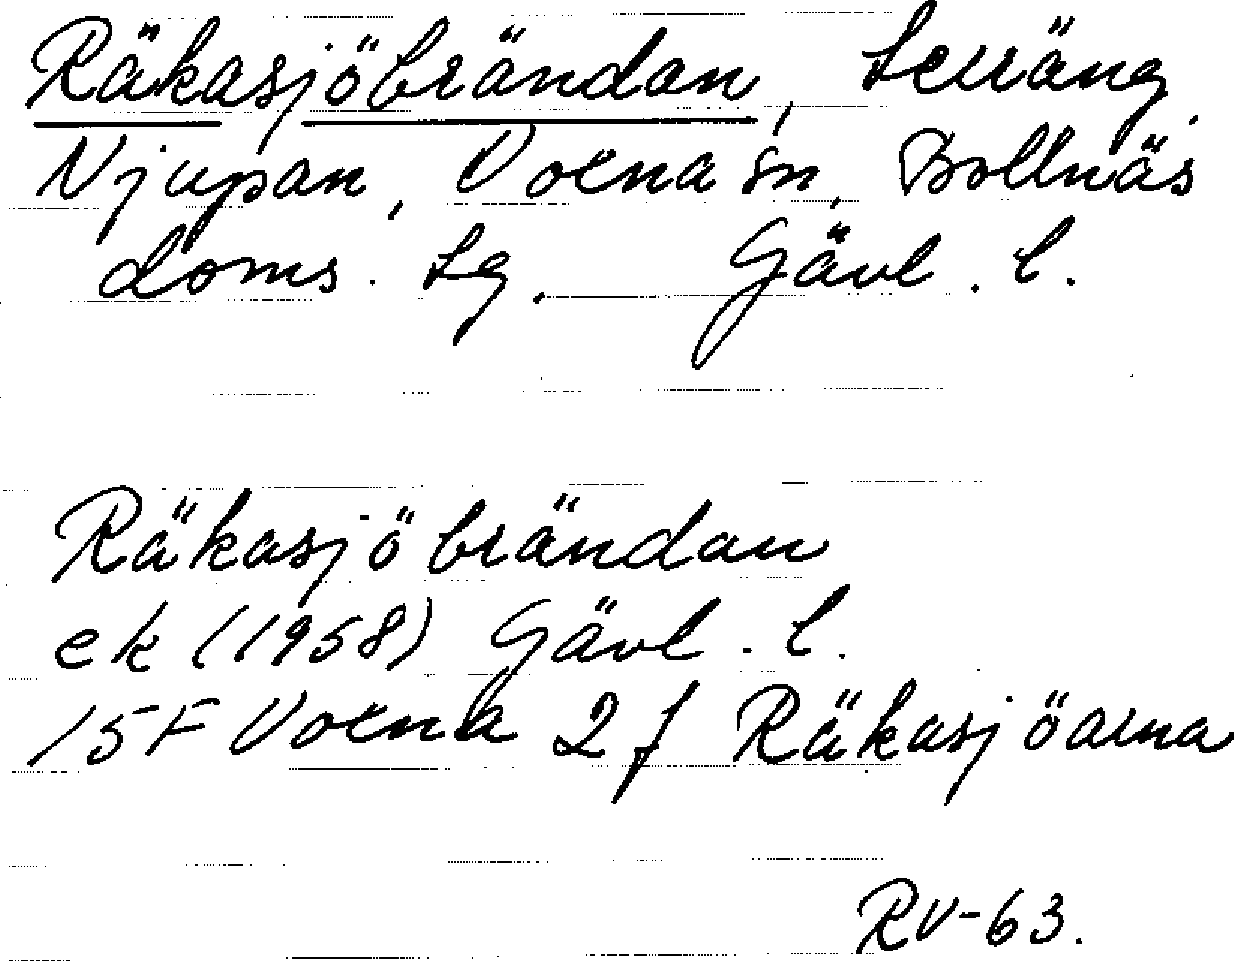 Räkasjöbrändan, terräng,
Njupan, Voxna sn, Bollnäs
doms. tg. Gävl. l.
Räkasjöbrändan
ek (1958) Gävl. l.
15F Voxna 2 f Räkasjöarna
RV-63.